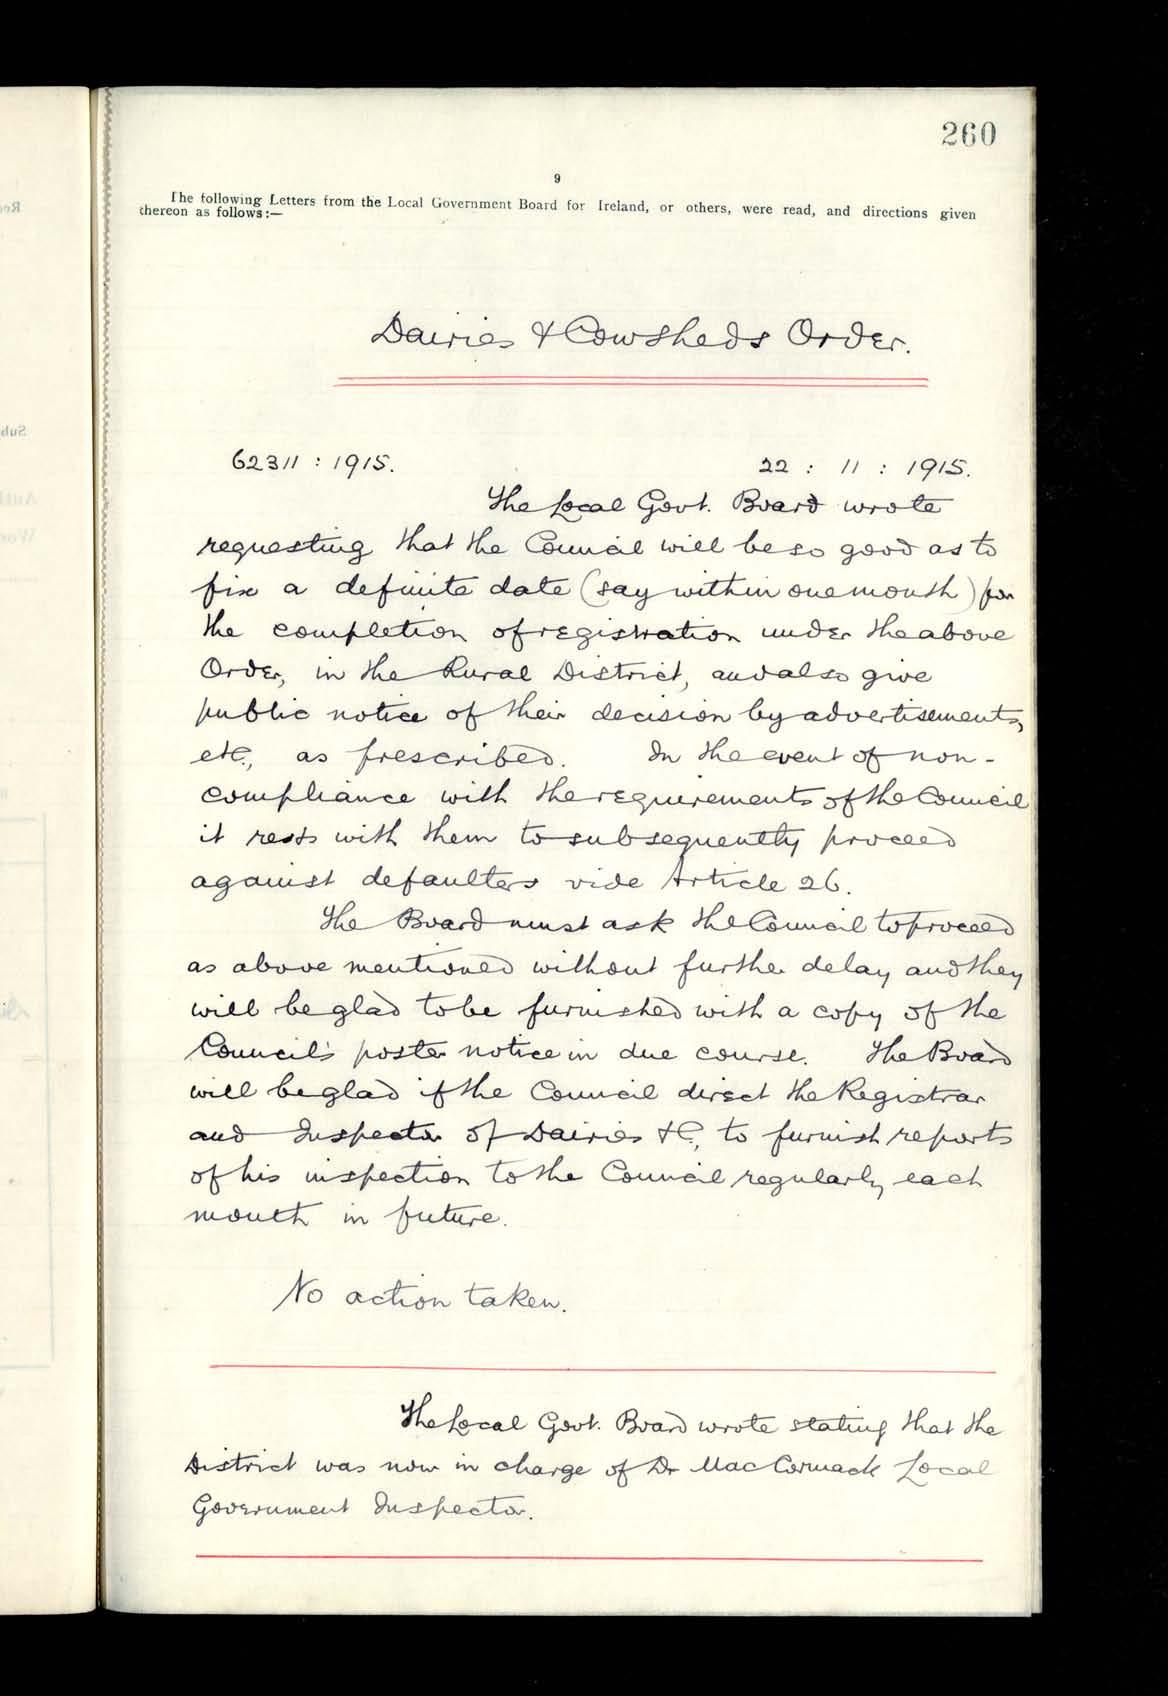 260
9
The following Letters from the Local Government Board for Ireland, or others, were read, and directions given
thereon as follows:—
Dairies & Cowsheds Order.
62311 : 1915.
22 : 11 : 1915.
The Local Govt. Board wrote
requesting that the Council will be so good as to
fix a definite date (say within one month) for
the completion of registration under the above
Order, in the Rural District, and also give
public notice of their decision by advertisements,
etc., as prescribed. In the event of non-
compliance with the requirements of the Council
it rests with them to subsequently proceed
against defaulters vide Article 26.
The Board must ask the Council to proceed
as above mentioned without further delay and they
will be glad to be furnished with a copy of the
Council's poster notice in due course. The Board
will be glad if the Council direct the Registrar
and Inspector of Dairies &c, to furnish reports
of his inspection to the Council regularly each
month in future.
No action taken.
The Local Govt. Board wrote stating that the
District was now in charge of Dr MacCormack Local
Government Inspector.